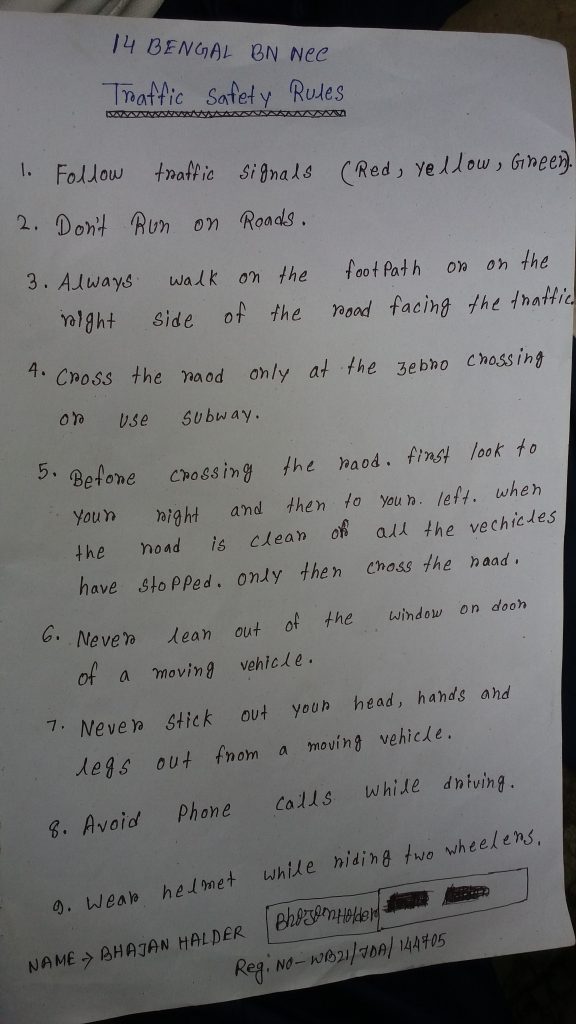 14 BENGAL BN NCC
Traffic Safety Rules
1. Follow traffic signals (Red, Yellow, Green).
2. Don't Run on Roads.
3. Always walk on the footPath or on the
right side of the road facing the traffic.
4. Cross the raod only at the zebro crossing
or use subway.
5. Before crossing the raod. first look to
your right and then to your. left. when
the road is clear or all the vechicles
have stopped. only then cross the raad.
6. Never lean out of the window or door
of a moving vehicle.
7. Never stick out your head, hands and
legs out from a moving vehicle.
8. Avoid Phone calls while driving.
9. Wear helmet while riding two wheelers.
NAME → BHAJAN HALDER Bhajan Halder
Reg. NO - WB21/JDA/144705